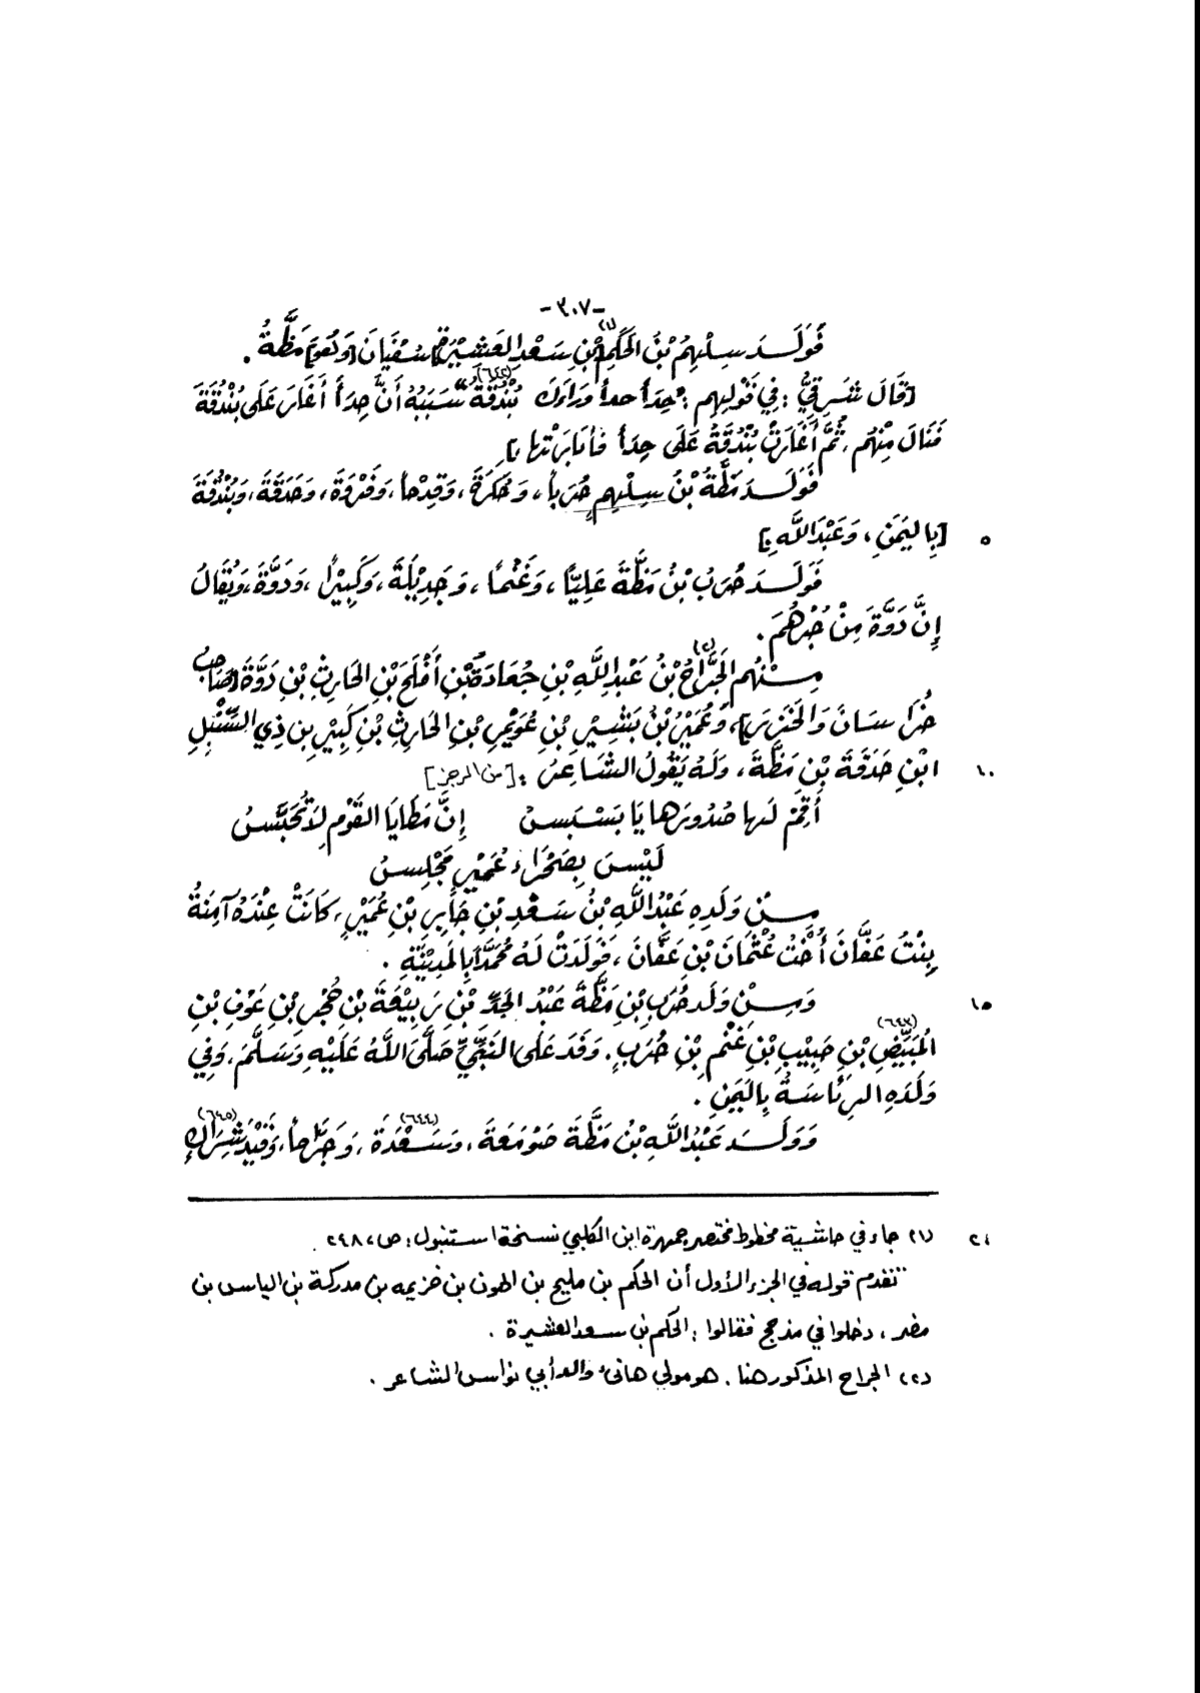 -٣٠٧-
فَوَلَدَ سِلْهِمُ بْنُ الحَكَمِ(١) بْنِ سَعْدِ العَشِيْرَةِ سُفْيَانَ [وَهُوَ] مَظَّةُ .
[قَالَ شَرقِيٌّ : فِي قَوْلِهِم : "حِدَأَ حدأ وَرَاءَكَ بُنْدُقَةُ"(٦٤٢) سَبَبُهُ أَنَّ حِدَأَ أَغَارَ عَلَى بُنْدُقَةَ
فَنَالَ مِنْهُم ، ثُمَّ أَغَارَتْ بُنْدُقَةُ عَلَى حِدَأَ فأبَادَتْها ].
فَوَلَدَ مَظَّةُ بْنُ سِلْهِمٍ حُرَباً ، وَحَكَرَةَ ، وَقِدْحاً ، وَفَرْوَةَ ، وَحَدَقَةَ ، وَبُنْدُقَةَ
[بِاليَمَنِ ، وَعَبْدَ اللَّهِ .] ٥
فَوَلَدَ حُرَبُ بْنُ مَظَّةَ عَلِيّاً ، وَغَنْماً ، وَجَدِيْلَةَ ، وَكَبِيْراً ، وَدَوَّةَ ، وَيُقَالُ
إِنَّ دَوَّةَ مِنْ جُرْهُمَ .
مِنْهُم الجَرَّاحُ(٢) بْنُ عَبْدِ اللَّهِ بْنِ جُعَادَةَ بْنِ أَفْلَحَ بْنِ الحَارِثِ بْنِ دَوَّةَ [صَاحِبُ
خُرَاسَانَ وَالخَزَرِ]، وَعُمَيْرُ بْنُ بَشِيْرِ بْنِ عُوَيْمِرِ بْنِ الحَارِثِ بْنِ كَبِيْرِ بنِ ذِي السَّبَلِ
ابْنِ حَدَقَةَ بْنِ مَظَّةَ ، وَلَهُ يَقُولُ الشَّاعِرُ : [من الرجز] ١٠
أَقِمْ لَها صُدُورَها يَا بَسْبَسُ إِنَّ مَطَايَا القَوْمِ لاَ تُحَبَّسُ
لَيْسَ بِصَحْرَاءِ عُمَيْرٍ مَجْلِسُ
مِنْ وَلَدِهِ عَبْدُ اللَّهِ بْنُ سَعْدِ بْنِ جَابِرِ بْنِ عُمَيْرٍ ، كَانَتْ عِنْدَهُ آمِنَةُ
بِنْتُ عَفَّانَ أُخْتُ عُثْمَانَ بْنِ عَفَّانَ ، فَوَلَدَتْ لَهُ مُحَمَّداً بِالمَدِيْنَةِ .
وَمِنْ وَلَدِ حُرَبِ بْنِ مَظَّةَ عَبْدُ الجَدِّ بْنُ رَبِيْعَةَ بْنِ حُجْرِ بْنِ عَوْفِ بْنِ ١٥
المُبَيِّضِ(٦٤٣) بْنِ حَبِيْبِ بْنِ غَنْمِ بْنِ حُرَبٍ . وَفَدَ عَلَى النَّبِيِّ صَلَّى اللَّهُ عَلَيْهِ وَسَلَّمَ ، وَفِي
وَلَدِهِ الرِئَاسَةُ بِاليَمَنِ .
وَوَلَدَ عَبْدُ اللَّهِ بْنُ مَظَّةَ صَوْمَعَةَ ، وَسَعْدَةَ(٦٤٤) ، وَجَرَّاحاً ، وَقَيْدَ شِرَاكٍ(٦٤٥)
(١) جاء في حاشية مخطوط مختصر جمهرة ابن الكلبي نسخة استنبول : ص ، ٢٤٨ . ٢٠
"تقدم قوله في الجزء الأول أن الحكم بن مليح بن الهون بن خزيمه بن مدركة بن الياس بن
مضر ، دخلوا في مذحج فقالوا : الحكم بن سعد العشيرة .
(٢) الجراح المذكور هنا . هو مولي هانئ والد أبي نواس الشاعر .